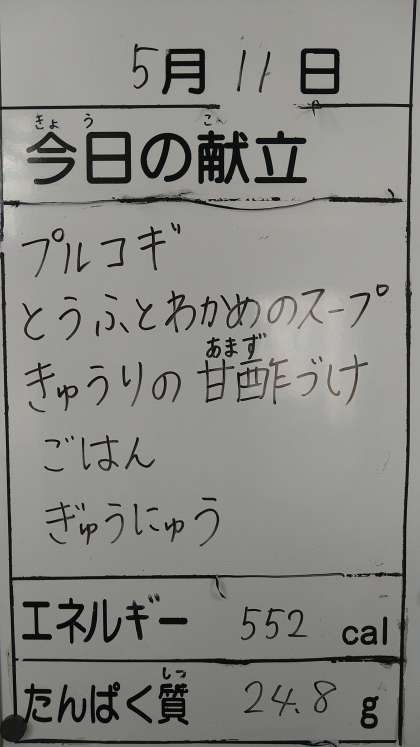 5月11日
きょう こ
今日の献立
プルコギ
とうふとわかめのスープ
あまず
きゅうりの甘酢づけ
ごはん
ぎゅうにゅう
エネルギー 552 cal
しつ
たんぱく質 24.8 g